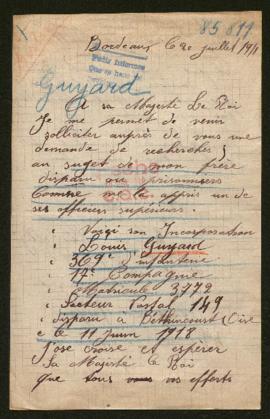 85 811
Bordeaux le 20 juillet 1918
Guyard
A sa Majesté Le Roi
Je me permet de venir
solliciter auprès de vous une
demande de recherches
au suget de mon frère
disparu ou prisonniers
Comme me l'a appris un de
ses officiers supérieurs.
Voiçi son Incorporation
Louis Guyard
369e d'infanterie
17e Compagnie
Matricule 3772
Secteur Postal 149
disparu à Béthincourt (Oise
le 11 Juin 1918
J'ose croire et espérer
Sa Majesté le Roi
que tous vos efforts